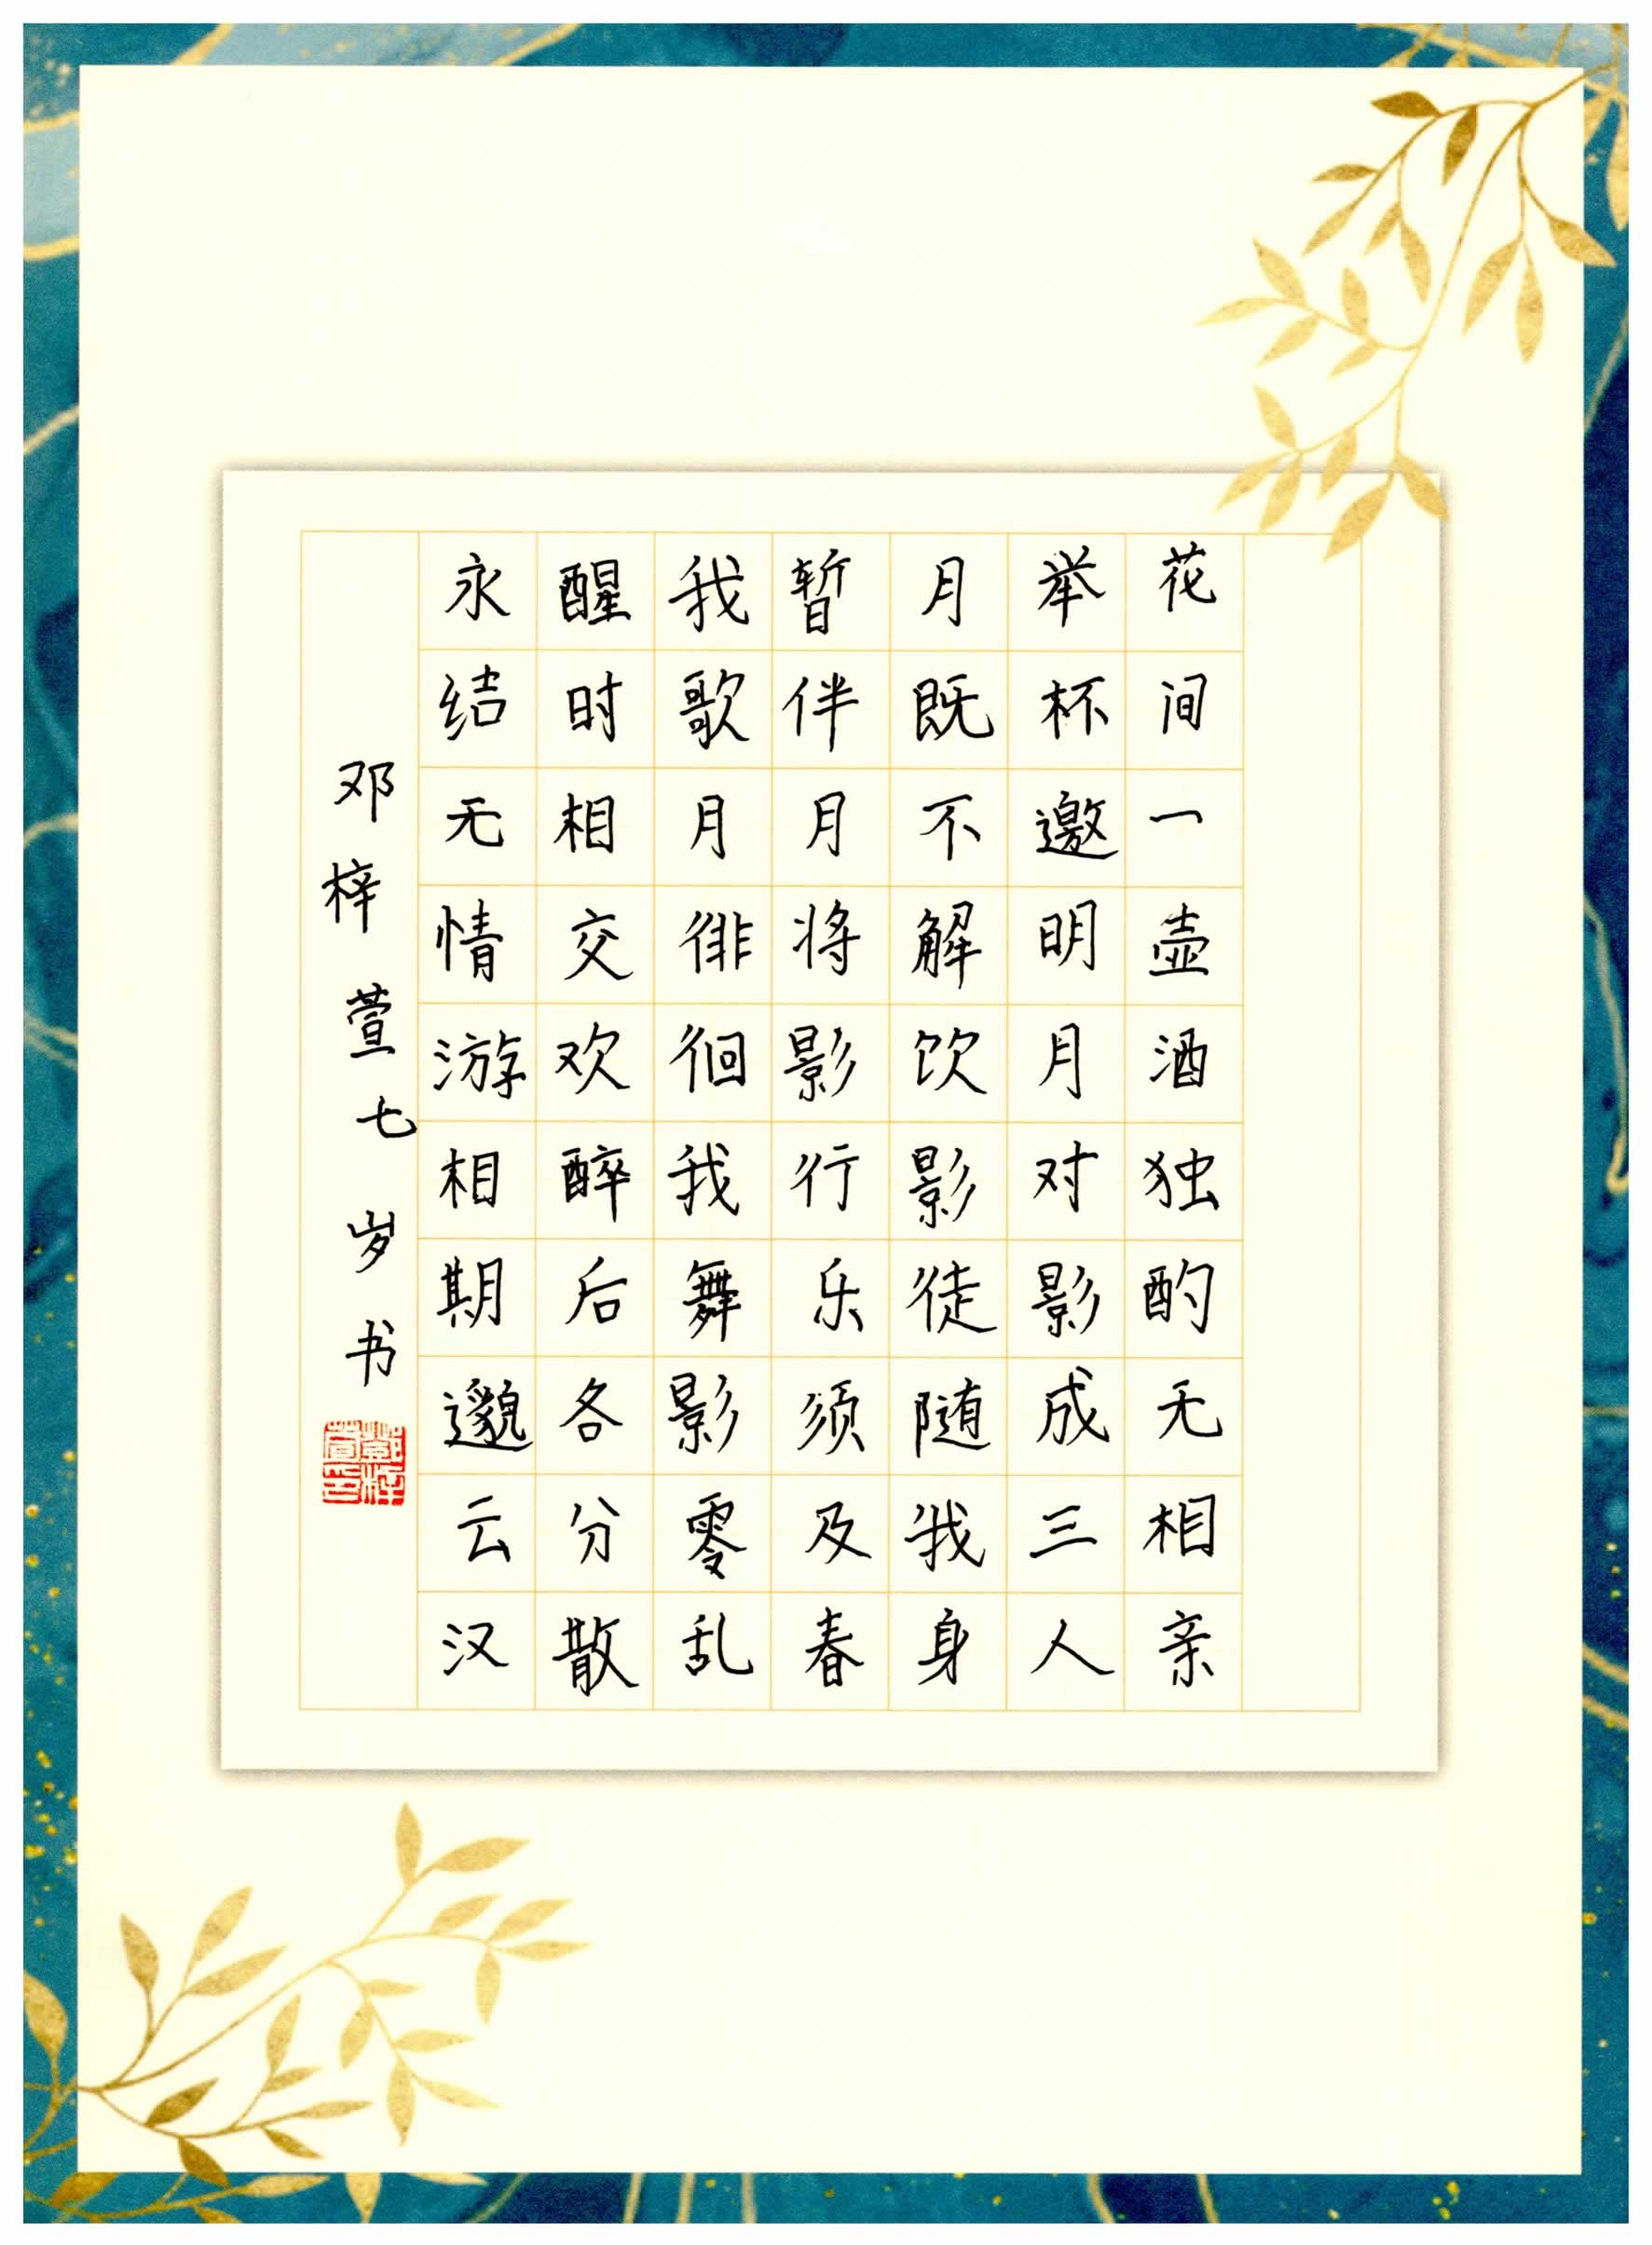 花间一壶酒独酌无相亲
举杯邀明月对影成三人
月既不解饮影徒随我身
暂伴月将影行乐须及春
我歌月徘徊我舞影零乱
醒时相交欢醉后各分散
永结无情游相期邈云汉
邓梓萱七岁书